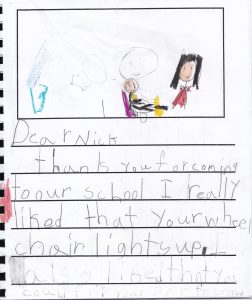 Dear Nick
thanks you for coming
to our school I really
liked that your wheel
chair lights up. I
also liked that you
could